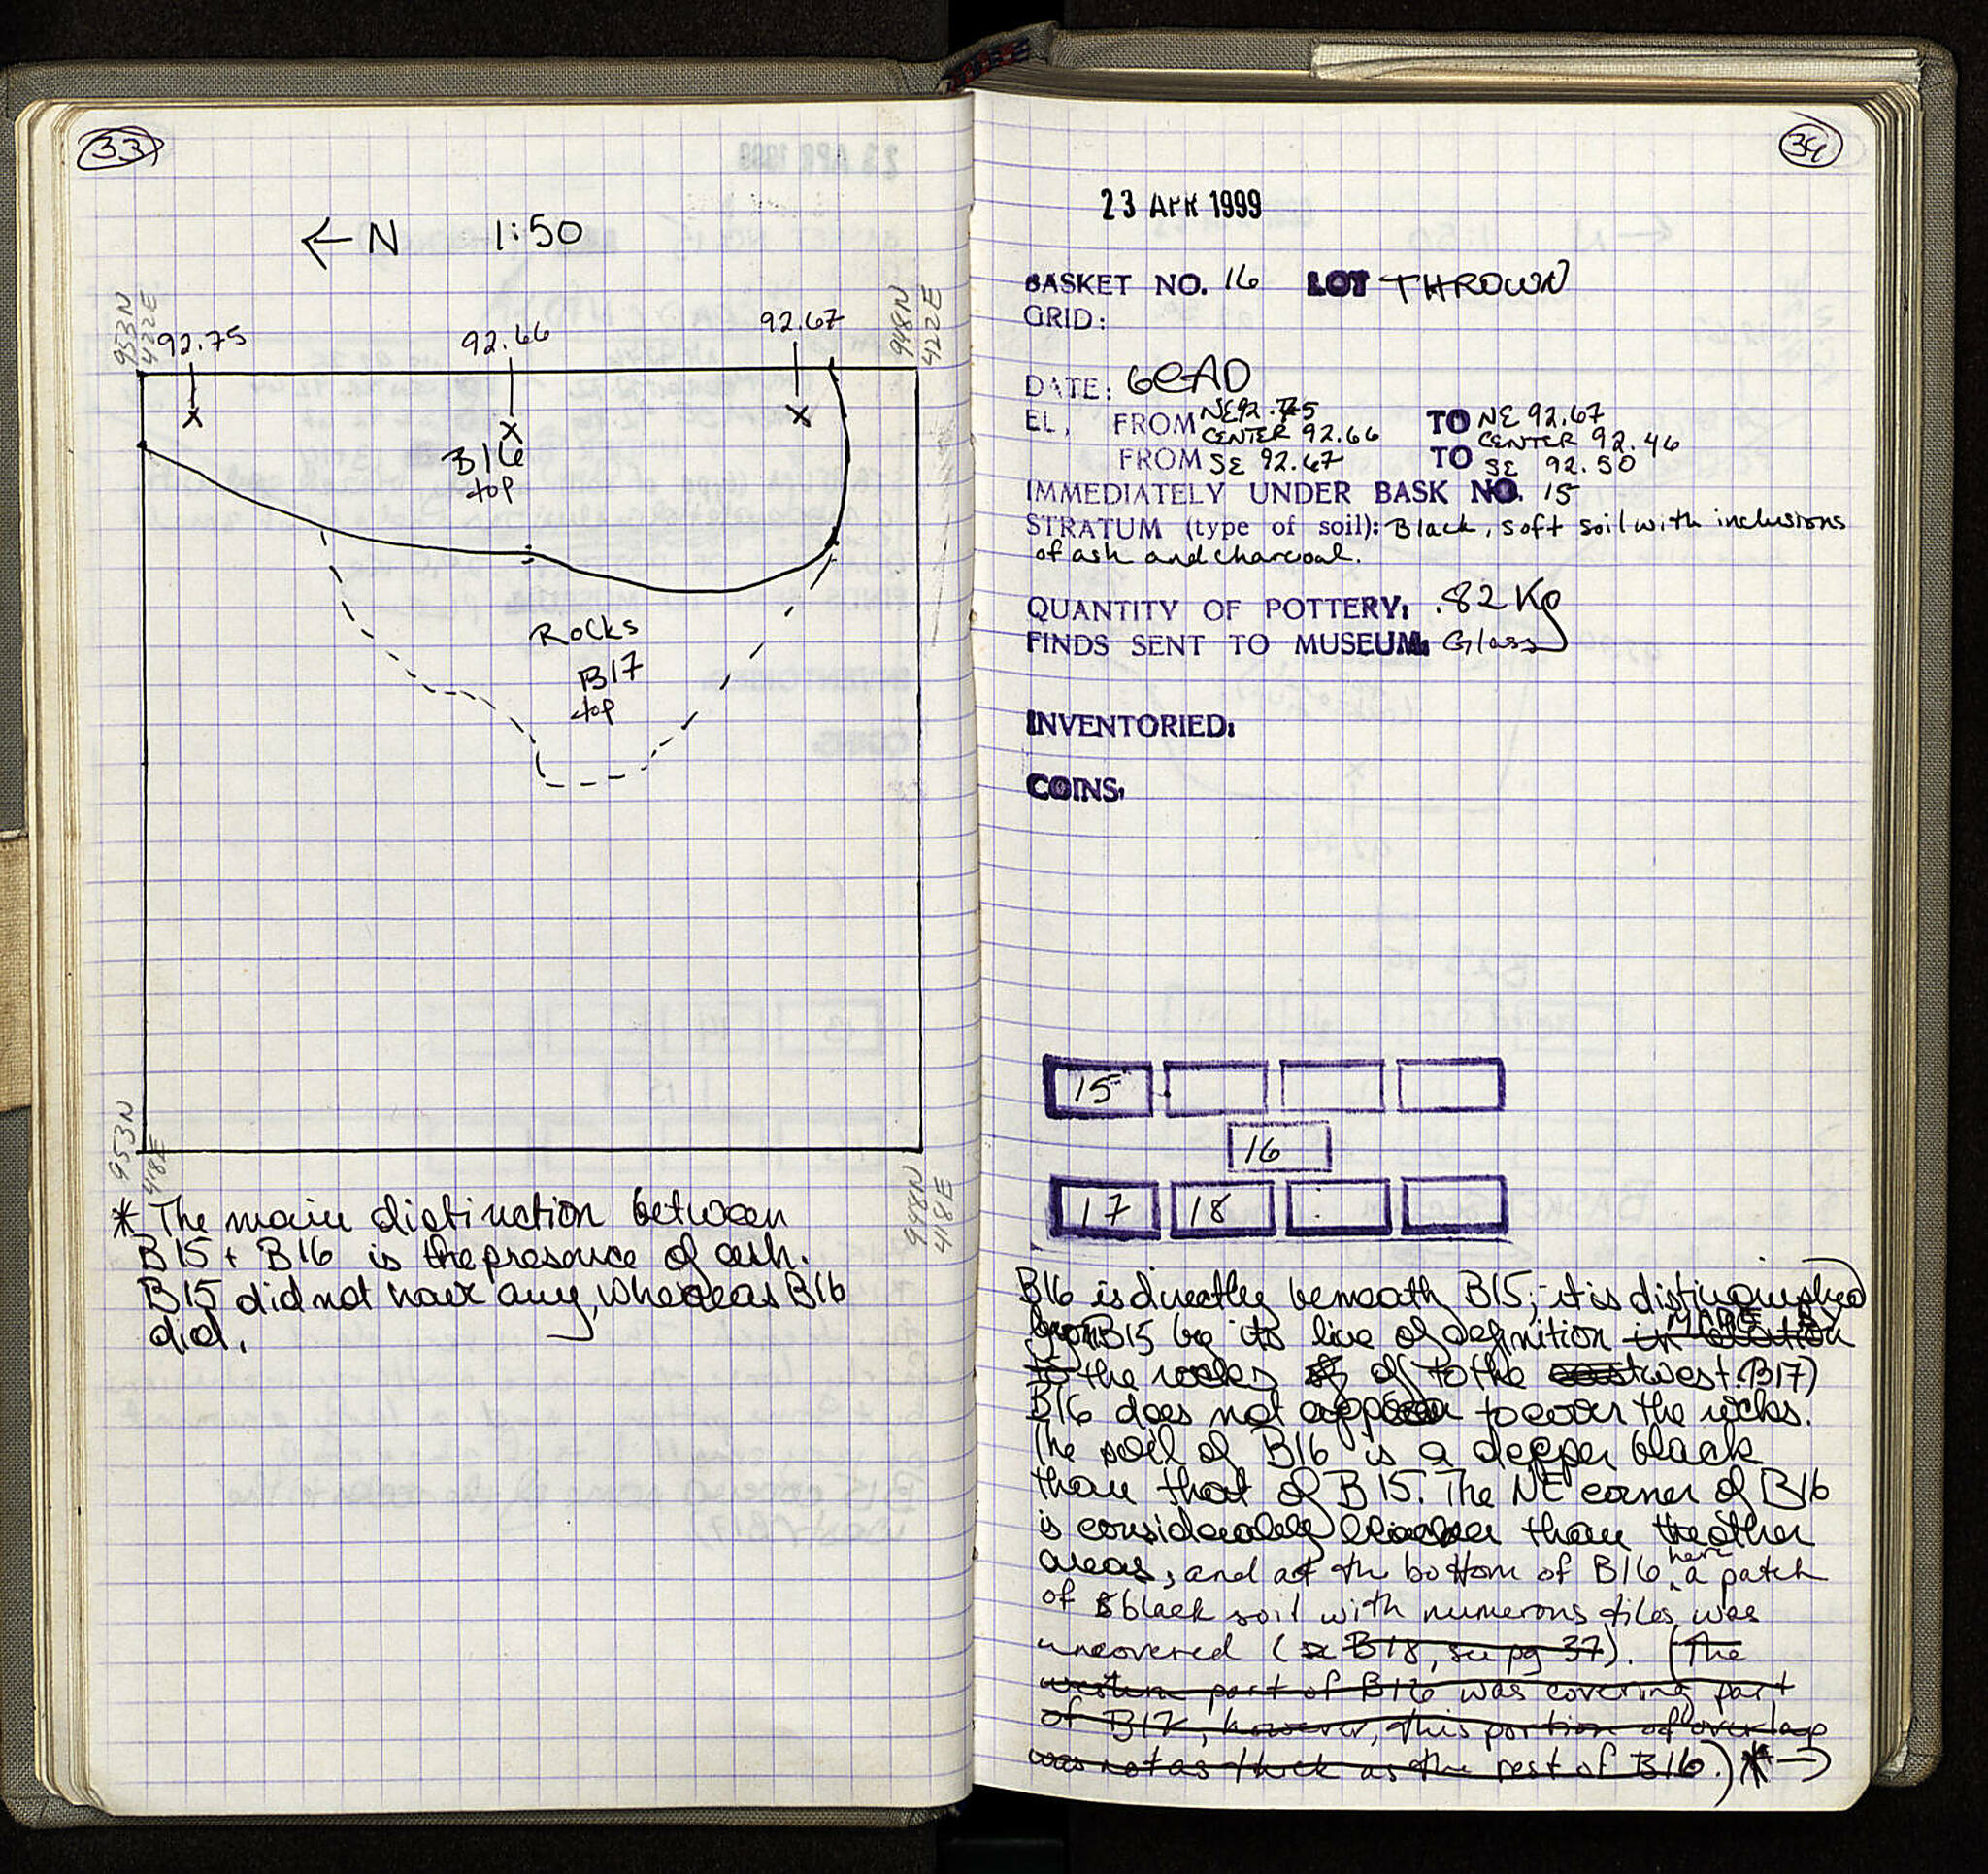 33
← N 1:50
953N
422E
92.75
92.66
92.67
948N
422E
x
x
x
B16
top
Rocks
B17
top
953N
418E
948N
418E
* The main distinction between
B15 + B16 is the presence of ash.
B15 did not have any, whereas B16
did.
34
23 APR 1999
BASKET NO. 16 LOT THROWN
GRID:
DATE:
EL, FROM NE 92.75 TO NE 92.67
CENTER 92.66 CENTER 92.46
FROM SE 92.67 TO SE 92.50
IMMEDIATELY UNDER BASK NO. 15
STRATUM (type of soil): Black, soft soil with inclusions
of ash and charcoal.
QUANTITY OF POTTERY: .82 Kg
FINDS SENT TO MUSEUM: Glass
INVENTORIED:
COINS:
15
16
17 18
B16 is directly beneath B15; it is distinguished
from B15 by its line of definition
the rocks to the west. B17)
B16 does not appear to cover the rocks.
The soil of B16 is a deeper black
than that of B15. The NE corner of B16
is considerably blacker than the other
areas, and at the bottom of B16 here a patch
of black soil with numerous tiles was
uncovered (B18, see pg 37). (The
western part of B16 was covering part
of B17, however, this portion of overlap
was not as thick as the rest of B16.) * →